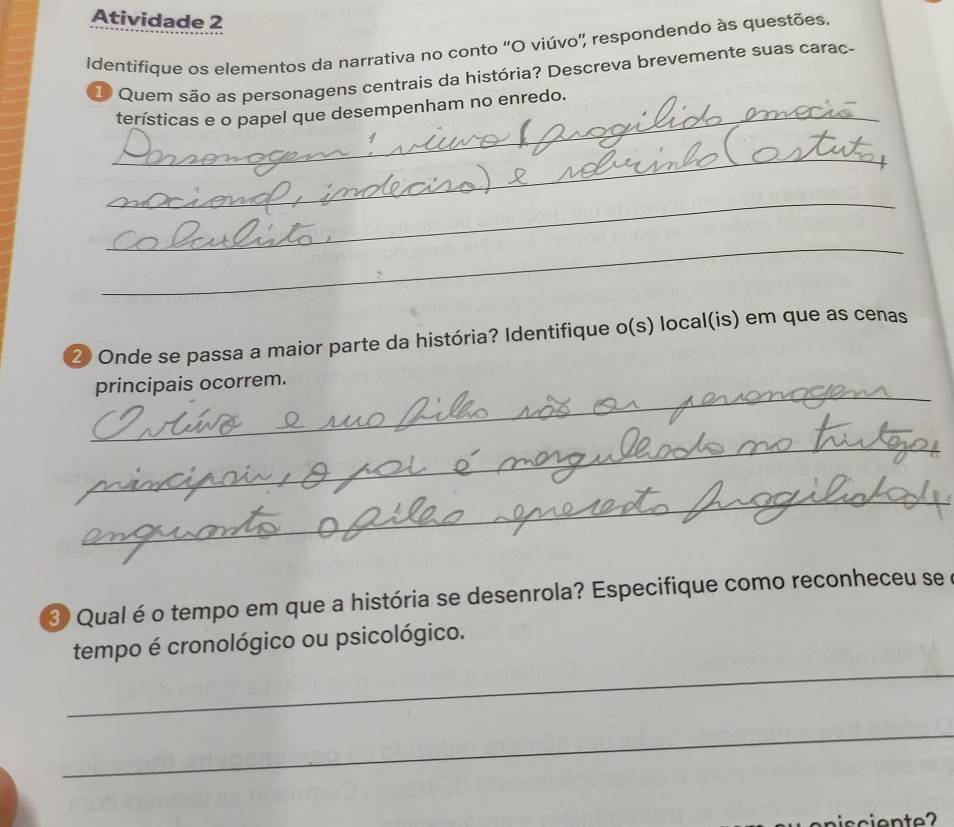 Atividade 2
Identifique os elementos da narrativa no conto "O viúvo", respondendo às questões.
1 Quem são as personagens centrais da história? Descreva brevemente suas carac-
terísticas e o papel que desempenham no enredo.
Personagem: viuvo (fragilido emocio
nocional, indeciso) e sobrinho (astuto,
calculisto.
2 Onde se passa a maior parte da história? Identifique o(s) local(is) em que as cenas
principais ocorrem.
O viúvo e suo filho são os personagem
principais, o pai é mergulhado no tristeza
enquanto o filho fragilidade
3 Qual é o tempo em que a história se desenrola? Especifique como reconheceu se
tempo é cronológico ou psicológico.
onisciente?